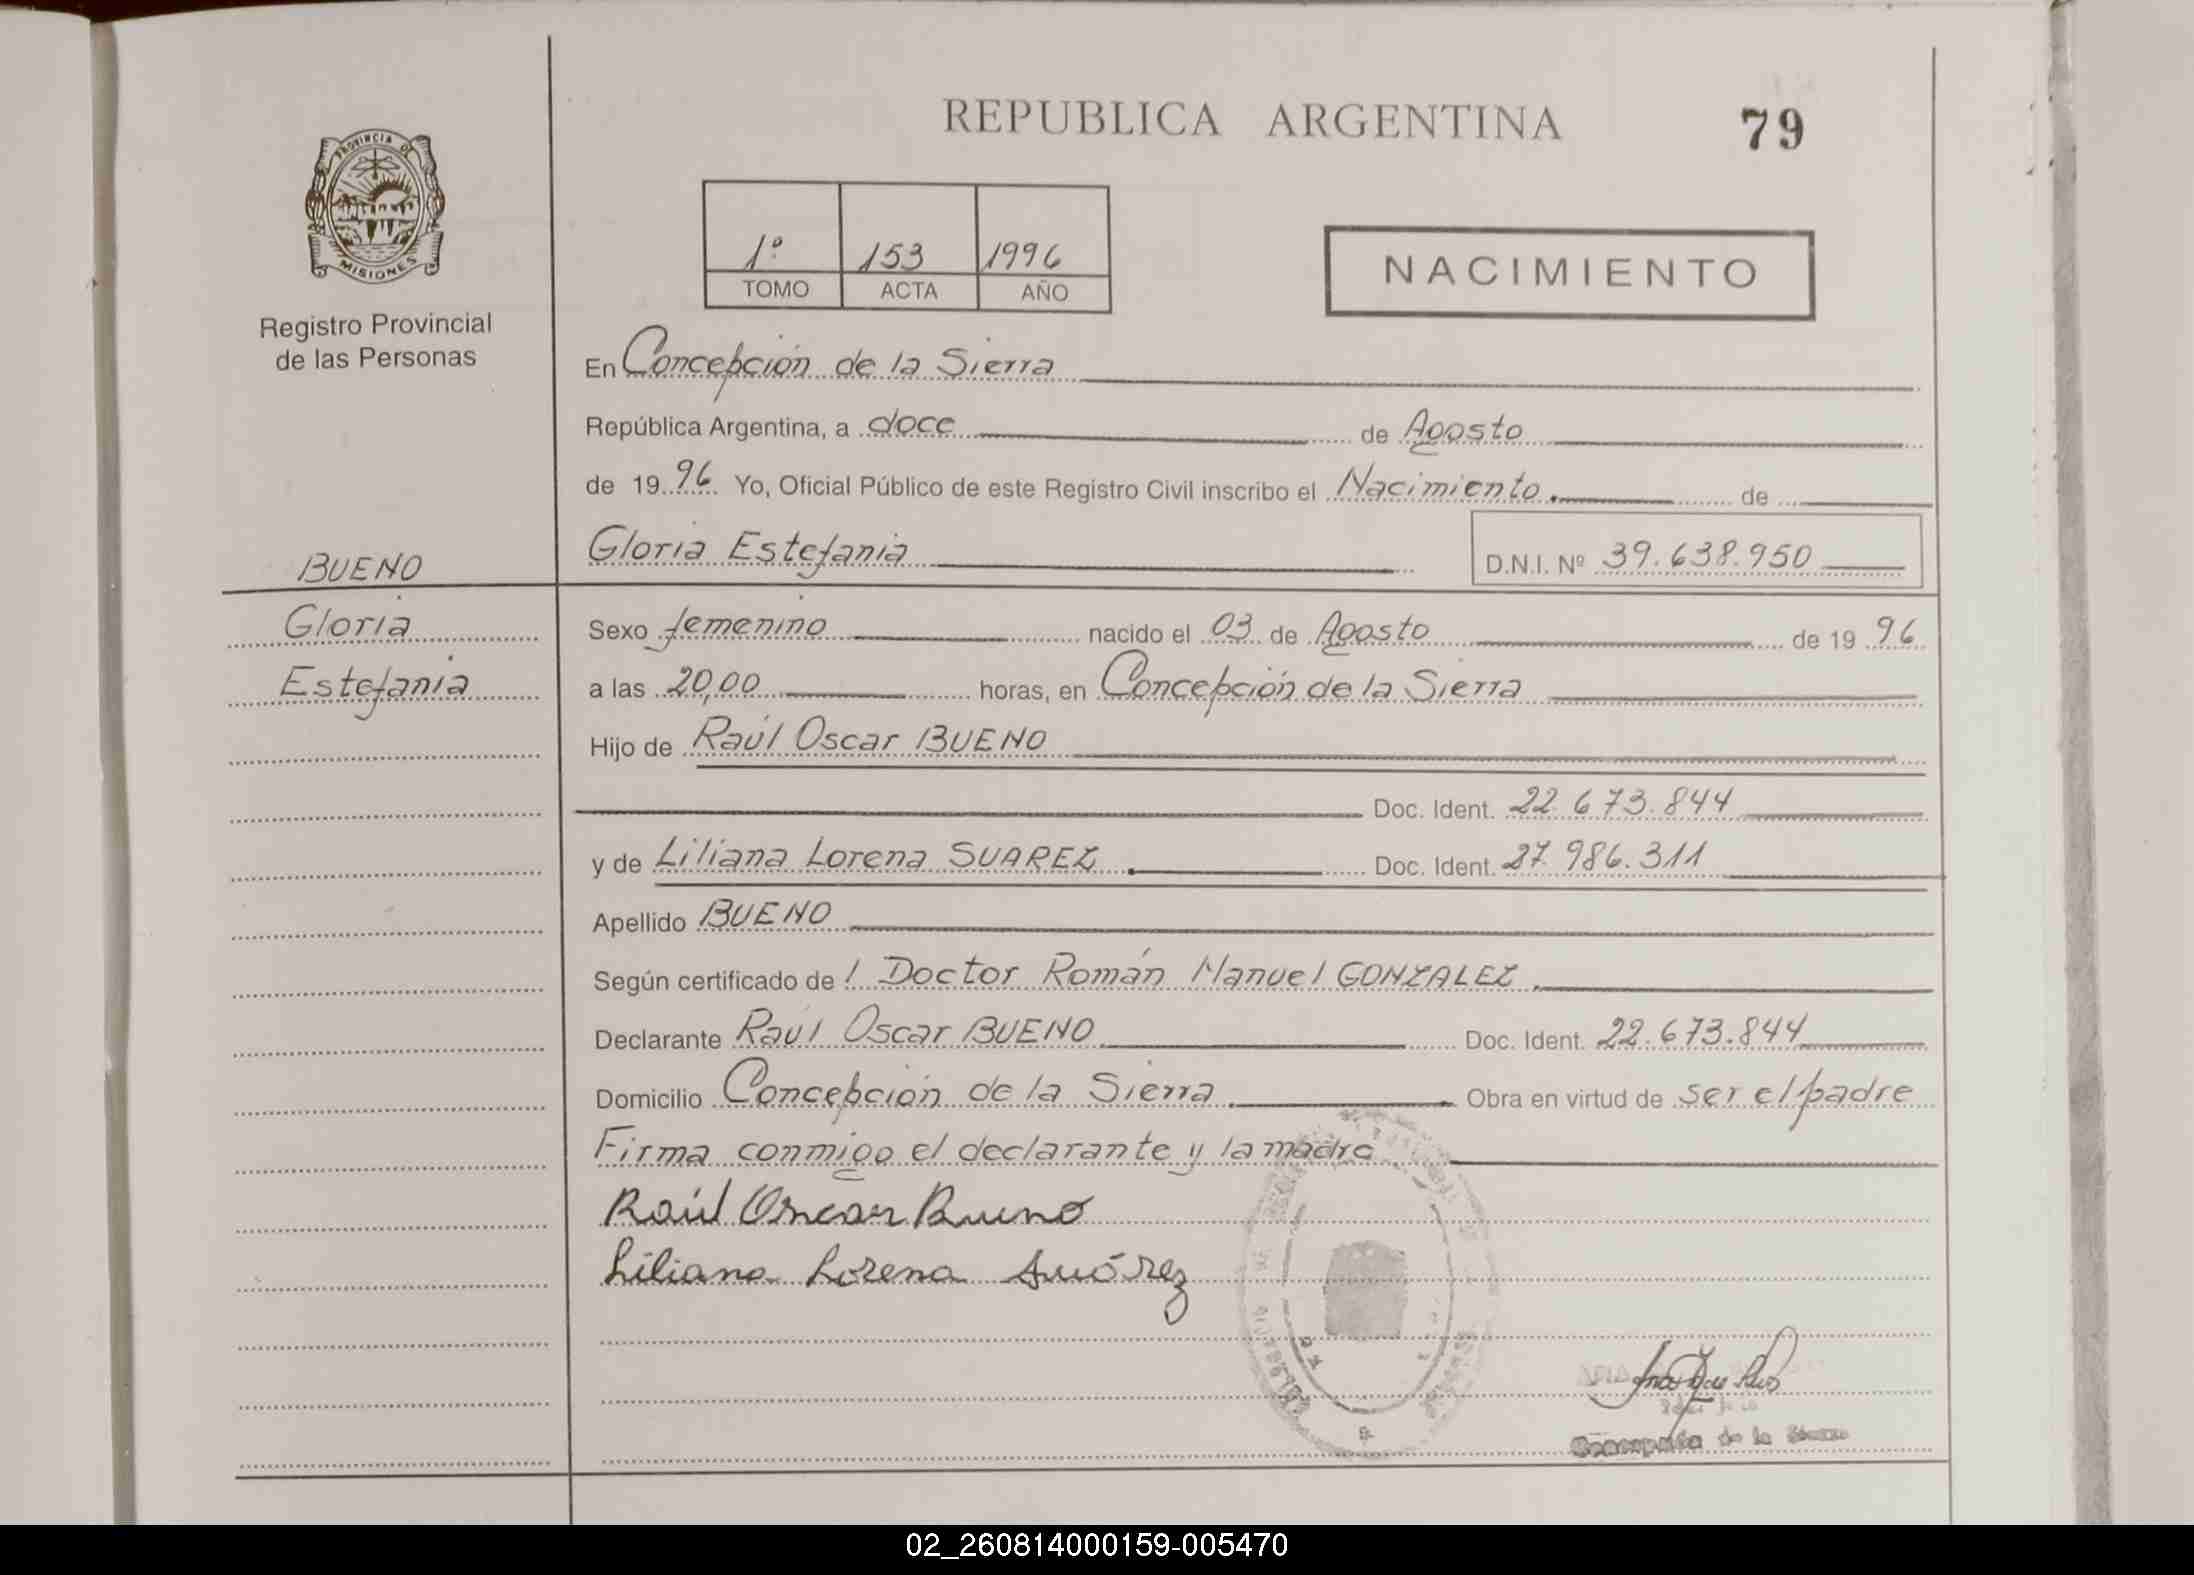 REPUBLICA ARGENTINA
79
PROVINCIA DE
MISIONES
Registro Provincial
de las Personas
1º 153 1996
TOMO ACTA AÑO
NACIMIENTO
En Concepción de la Sierra
República Argentina, a doce de Agosto
de 1996 Yo, Oficial Público de este Registro Civil inscribo el Nacimiento de
Gloria Estefania
D.N.I. Nº 39.638.950
BUENO
Gloria
Estefania
Sexo femenino nacido el 03 de Agosto de 1996
a las 20,00 horas, en Concepción de la Sierra
Hijo de Raúl Oscar BUENO
Doc. Ident. 22.673.844
y de Liliana Lorena SUAREZ. Doc. Ident. 27.986.311
Apellido BUENO
Según certificado de l Doctor Román Manuel GONZALEZ.
Declarante Raúl Oscar BUENO Doc. Ident. 22.673.844
Domicilio Concepción de la Sierra. Obra en virtud de ser el padre
Firma conmigo el declarante y la madre
Raúl Oscar Bueno
Liliana Lorena Suárez
de la Sierra
02_260814000159-005470